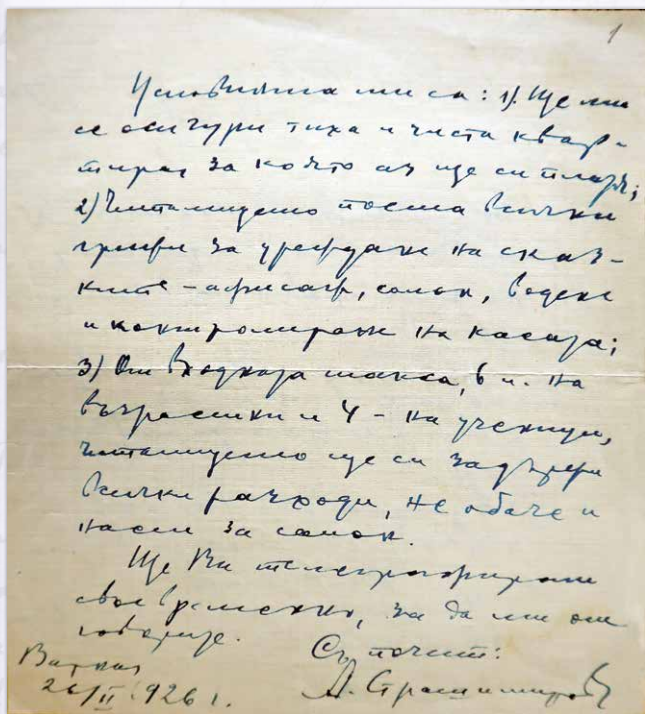 1
Условията ми са: 1). Ще ми
се осигури тиха и чиста квар-
тира, за която аз ще си платя;
2) Читалището поема всички
грижи за уреждане на сказ-
ките – афиши, салон, водене
и контролиране на касата;
3) От входната такса, 6 л. на
възрастни и 4 – на ученици,
читалището ще си задържи
всички разходи, не обаче и
наем за салон.
Ще Ви телеграфирам
своевременно, за да ми от
говорите.
Съ почит:
А. Страшимиров
Варна
26/II.926 г.